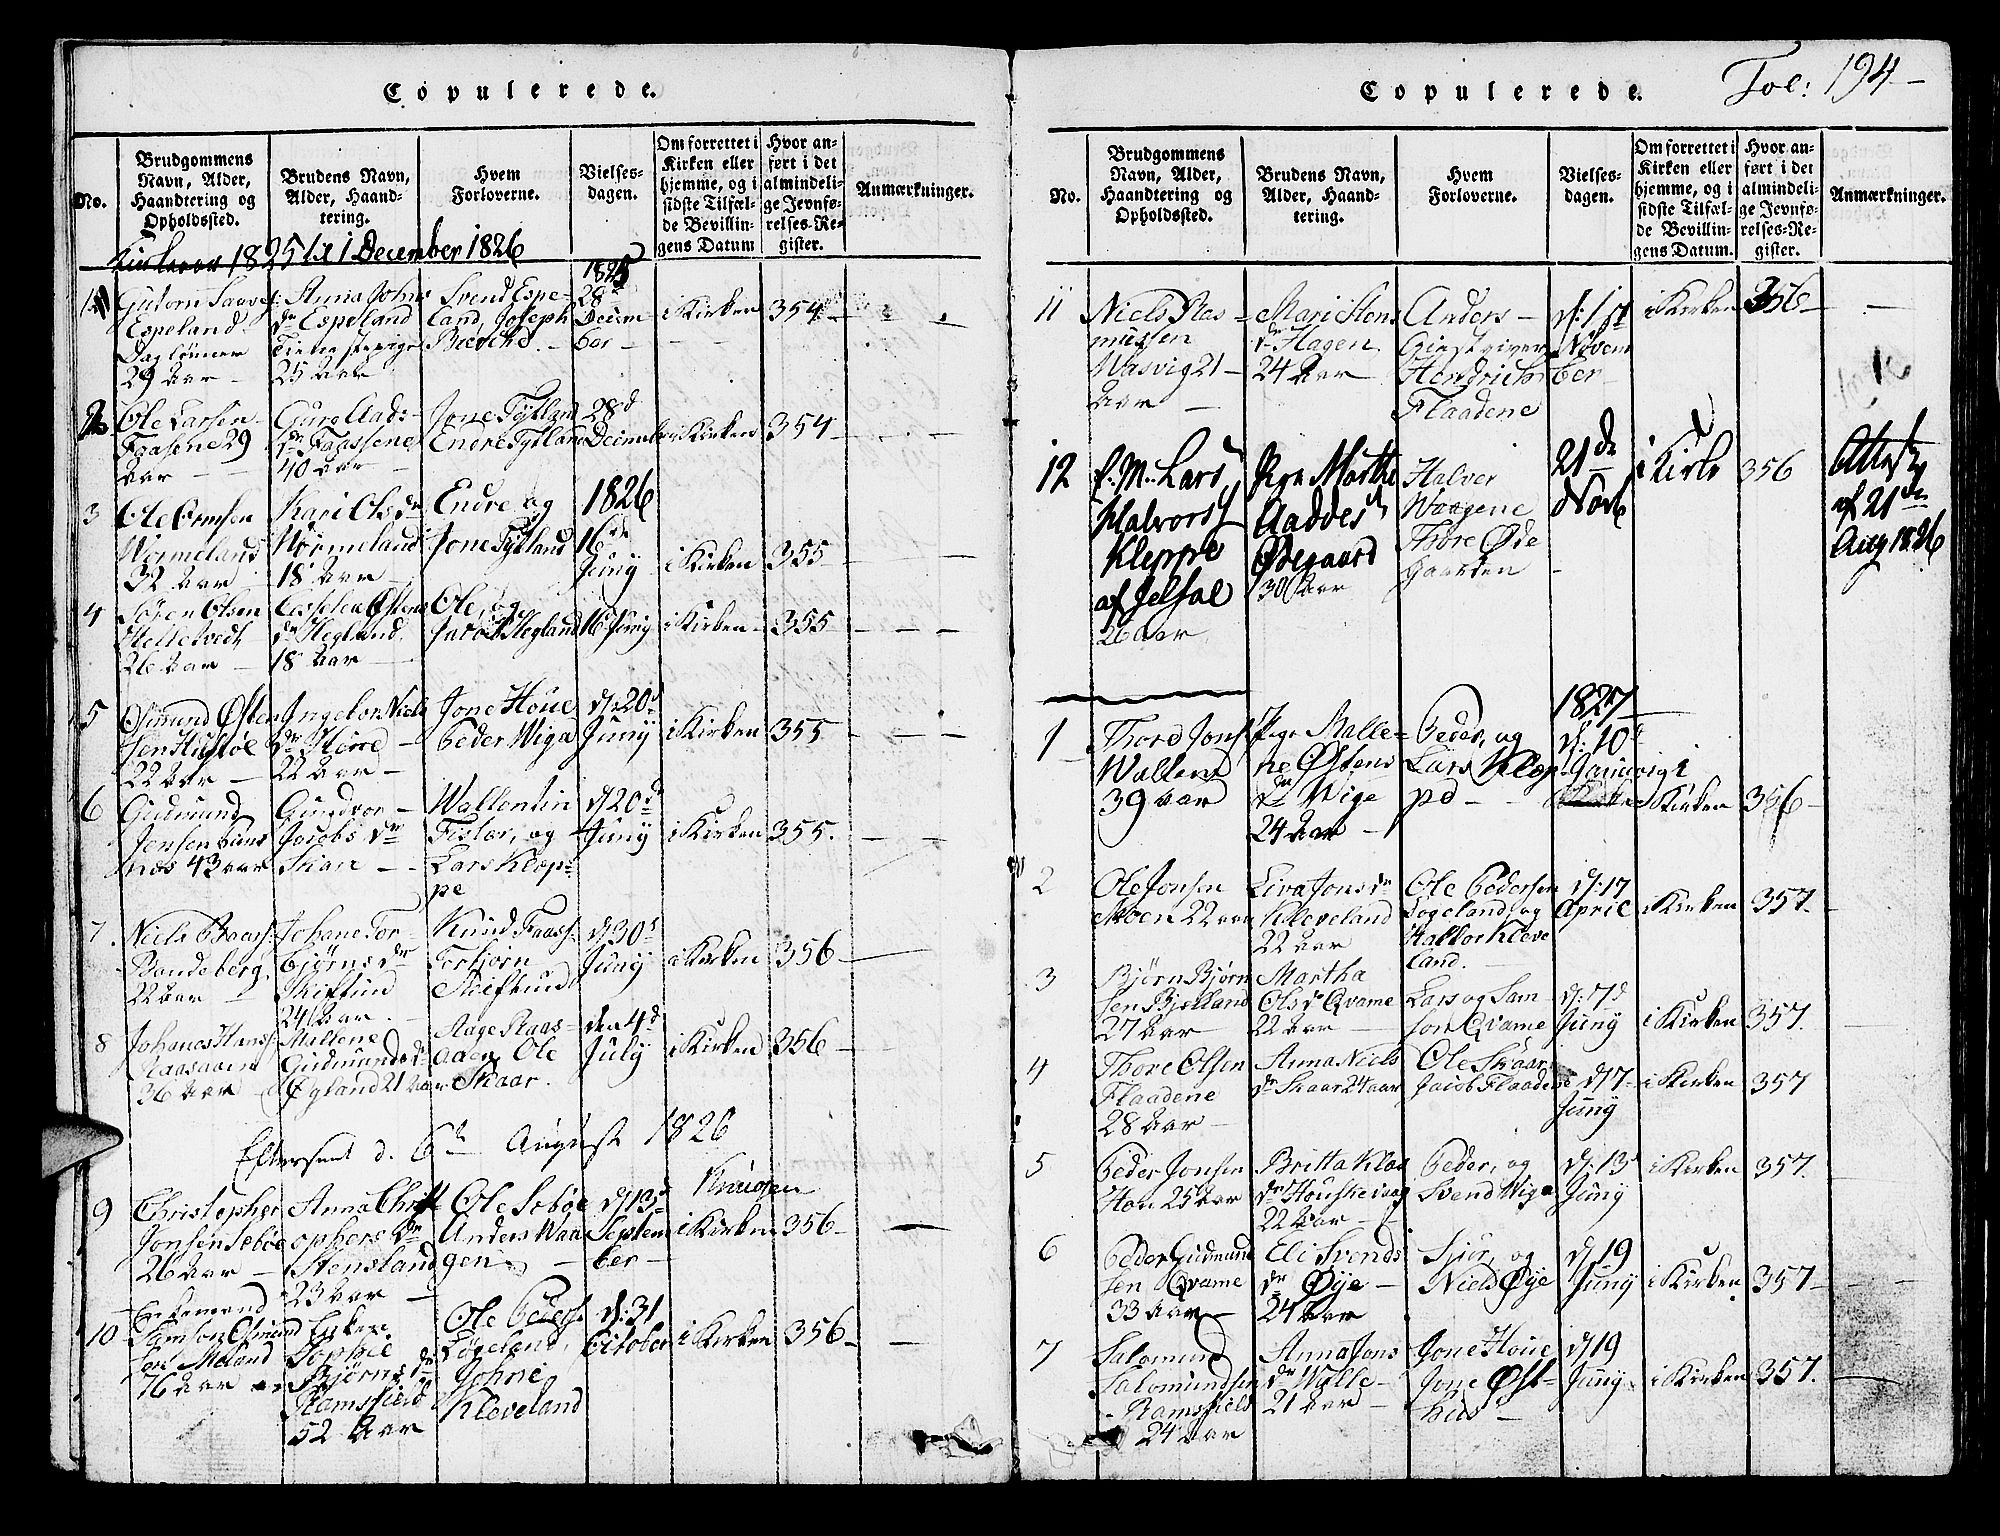 Copulerede.
No.
Brudgommens Navn, Alder, Haandtering og Opholdssted.
Brudens Navn, Alder, Haandtering.
Hvem Forloverne.
Vielsesdagen.
Om forrettet i Kirken eller hjemme, og i sidste Tilfælde Bevillingens Datum
Hvor anført i det almindelige Jevnførelses-Register.
Anmærkninger.
1825 1 December 1826
1
Espeland
29 Aar
Anna Johns
dr Espeland
25 Aar
Svend Espe-
land, Joseph
1825
28de
Decem-
ber
i Kirken
354
2
Ole Larsen
Faasene 29
Aar
Guro Aads
dr Faassene
40 Aar
Jone Tytland
Endre Tytland
28d
Decembr
i Kirken
354
3
Ole Ormsen
Wormeland
32 Aar
Kari Ols dr
Wormeland
18 Aar
Endre og
Jone Tytland
1826
16de
Juny
i Kirken
355
4
Sören Olsen
26 Aar
dr Hegland
18 Aar
Ole, og
Jacob Hegland
16 Juny
i Kirken
355
5
Osmund Østen
sen
22 Aar
Ingebor Niels
dr
22 Aar
Jone Houe
Peder Wiga
d: 20d
Juny
i Kirken
355
6
Gudmund
Jensen
næs 43 Aar
Gundvor
Jacobs dr
Skare
Wallentin
Fister, og
Lars Klop-
pe
d 20de
Juny
i Kirken
355.
7
Niels
22 Aar
Johane Tor-
bjørns dr
24 Aar
Knud Faass
Torbjørn
d 30
Juny
i Kirken
356
8
Johanes Hans
36 Aar
Mallene
Gudmunds dr
Øyland 21 Aar
Aage Raas-
aaen Ole
Skaar.
den 4d
July
i Kirken
356
Efterseet d. 6te August 1826
Knudsen
9
Christopher
Jonsen Sebøe
26 Aar
Anna Christ
ophers dr
Stensland
23 Aar
Ole Sebøe
Anders Waa
gen
d 13d
Septem
ber
i Kirken
356
10
Enkemand
Samson Osmund
sen Meland
76 Aar
Enken
Sophie
Bjørns dr
Ramsfield
52 Aar
Ole Peders
Løgeland,
Johne
Kleveland
d: 31
October
i Kirken
356
Copulerede.
Fol: 194
No.
Brudgommens Navn, Alder, Haandtering og Opholdssted.
Brudens Navn, Alder, Haandtering.
Hvem Forloverne.
Vielsesdagen.
Om forrettet i Kirken eller hjemme, og i sidste Tilfælde Bevillingens Datum.
Hvor anført i det almindelige Jevnførelses-Register.
Anmærkninger.
11
Niels Ras
mussen
Wasvig 21
Aar
Mari
dr Hagen
24 Aar
Anders
Giestgiver
Hendrich
Flaadene
d: 1st
Novem
ber
i Kirken
356
12
E. M. Lars
Halvors
Kleppe
af Jelsøe
26 Aar
Pgn Marthe
Aaddesd
Ødegaard
30 Aar
Halver
Waagene
Thore Øde
gaarden
21de
Novb
i Kirke
356
Attest
af 21de
Aug 1826
1
Thore Jons
39 aar
Pige Malle-
ne Østens
dr Wige
24 Aar
Peder, og
Lars Klop
pe
1827
d: 10
i
Kirken
356
2
Ole Jonsen
Moen 22 aar
Liva Jons dr
Kleveland
22 Aar
Ole Pedersen
Løgeland, og
Hallor Kleve
land.
d: 17
April
i Kirken
357.
3
Bjørn Bjørn
sen Bjelland
27 Aar
Martha
Ols dr Qvame
22 Aar
Lars og Sam-
son Qvame
d: 7d
Juny
i Kirken
357.
4
Thore Olsen
Flaadene
28 Aar
Anna Niels
dr Skaar 24 aar
Ole Skaar
Jacob Flaadene
d 7
Juny
i Kirken
357
5
Peder Jonsen
Hon 25 Aar
Britta Klas
dr
22 Aar
Peder, og
Svend Wiga
d: 13
Juny
i Kirken
357.
6
Peder Gudmund
sen Qvame
33 Aar
Eli Svends
dr Øye
24 Aar
Sjur, og
Niels Øye
d 19
Juny
i Kirken
357
7
Salomund
Salomundsen
Ramsfield
24 Aar
Anna Jons
dr Walle
21 Aar
Jone Houe
Jone Øst-
hus
d 19
Juny
i Kirken
357.